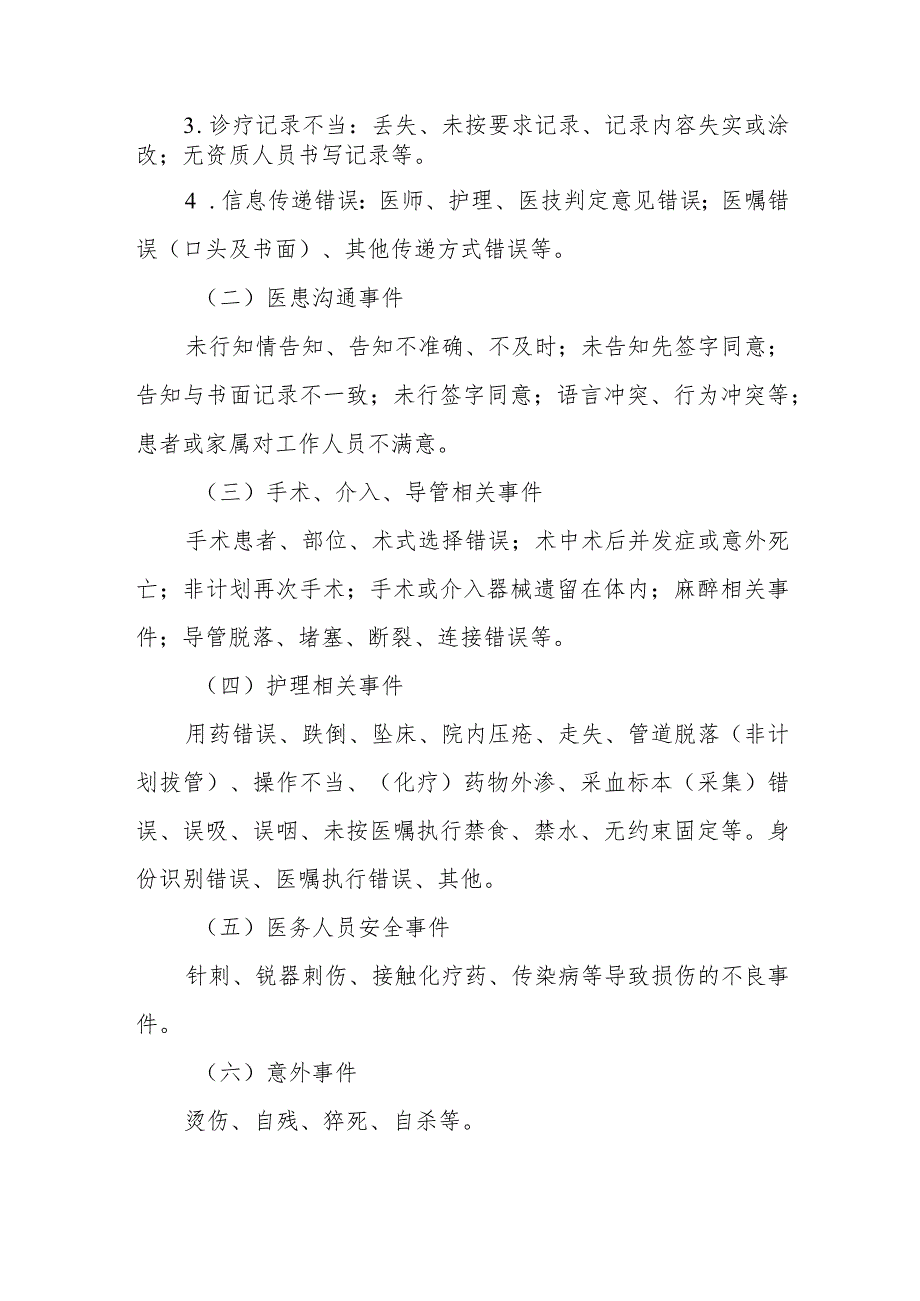 3.诊疗记录不当：丢失、未按要求记录、记录内容失实或涂
改；无资质人员书写记录等。
4 .信息传递错误：医师、护理、医技判定意见错误；医嘱错
误（口头及书面）、其他传递方式错误等。
（二）医患沟通事件
未行知情告知、告知不准确、不及时；未告知先签字同意；
告知与书面记录不一致；未行签字同意；语言冲突、行为冲突等；
患者或家属对工作人员不满意。
（三）手术、介入、导管相关事件
手术患者、部位、术式选择错误；术中术后并发症或意外死
亡；非计划再次手术；手术或介入器械遗留在体内；麻醉相关事
件；导管脱落、堵塞、断裂、连接错误等。
（四）护理相关事件
用药错误、跌倒、坠床、院内压疮、走失、管道脱落（非计
划拔管）、操作不当、（化疗）药物外渗、采血标本（采集）错
误、误吸、误咽、未按医嘱执行禁食、禁水、无约束固定等。身
份识别错误、医嘱执行错误、其他。
（五）医务人员安全事件
针刺、锐器刺伤、接触化疗药、传染病等导致损伤的不良事
件。
（六）意外事件
烫伤、自残、猝死、自杀等。